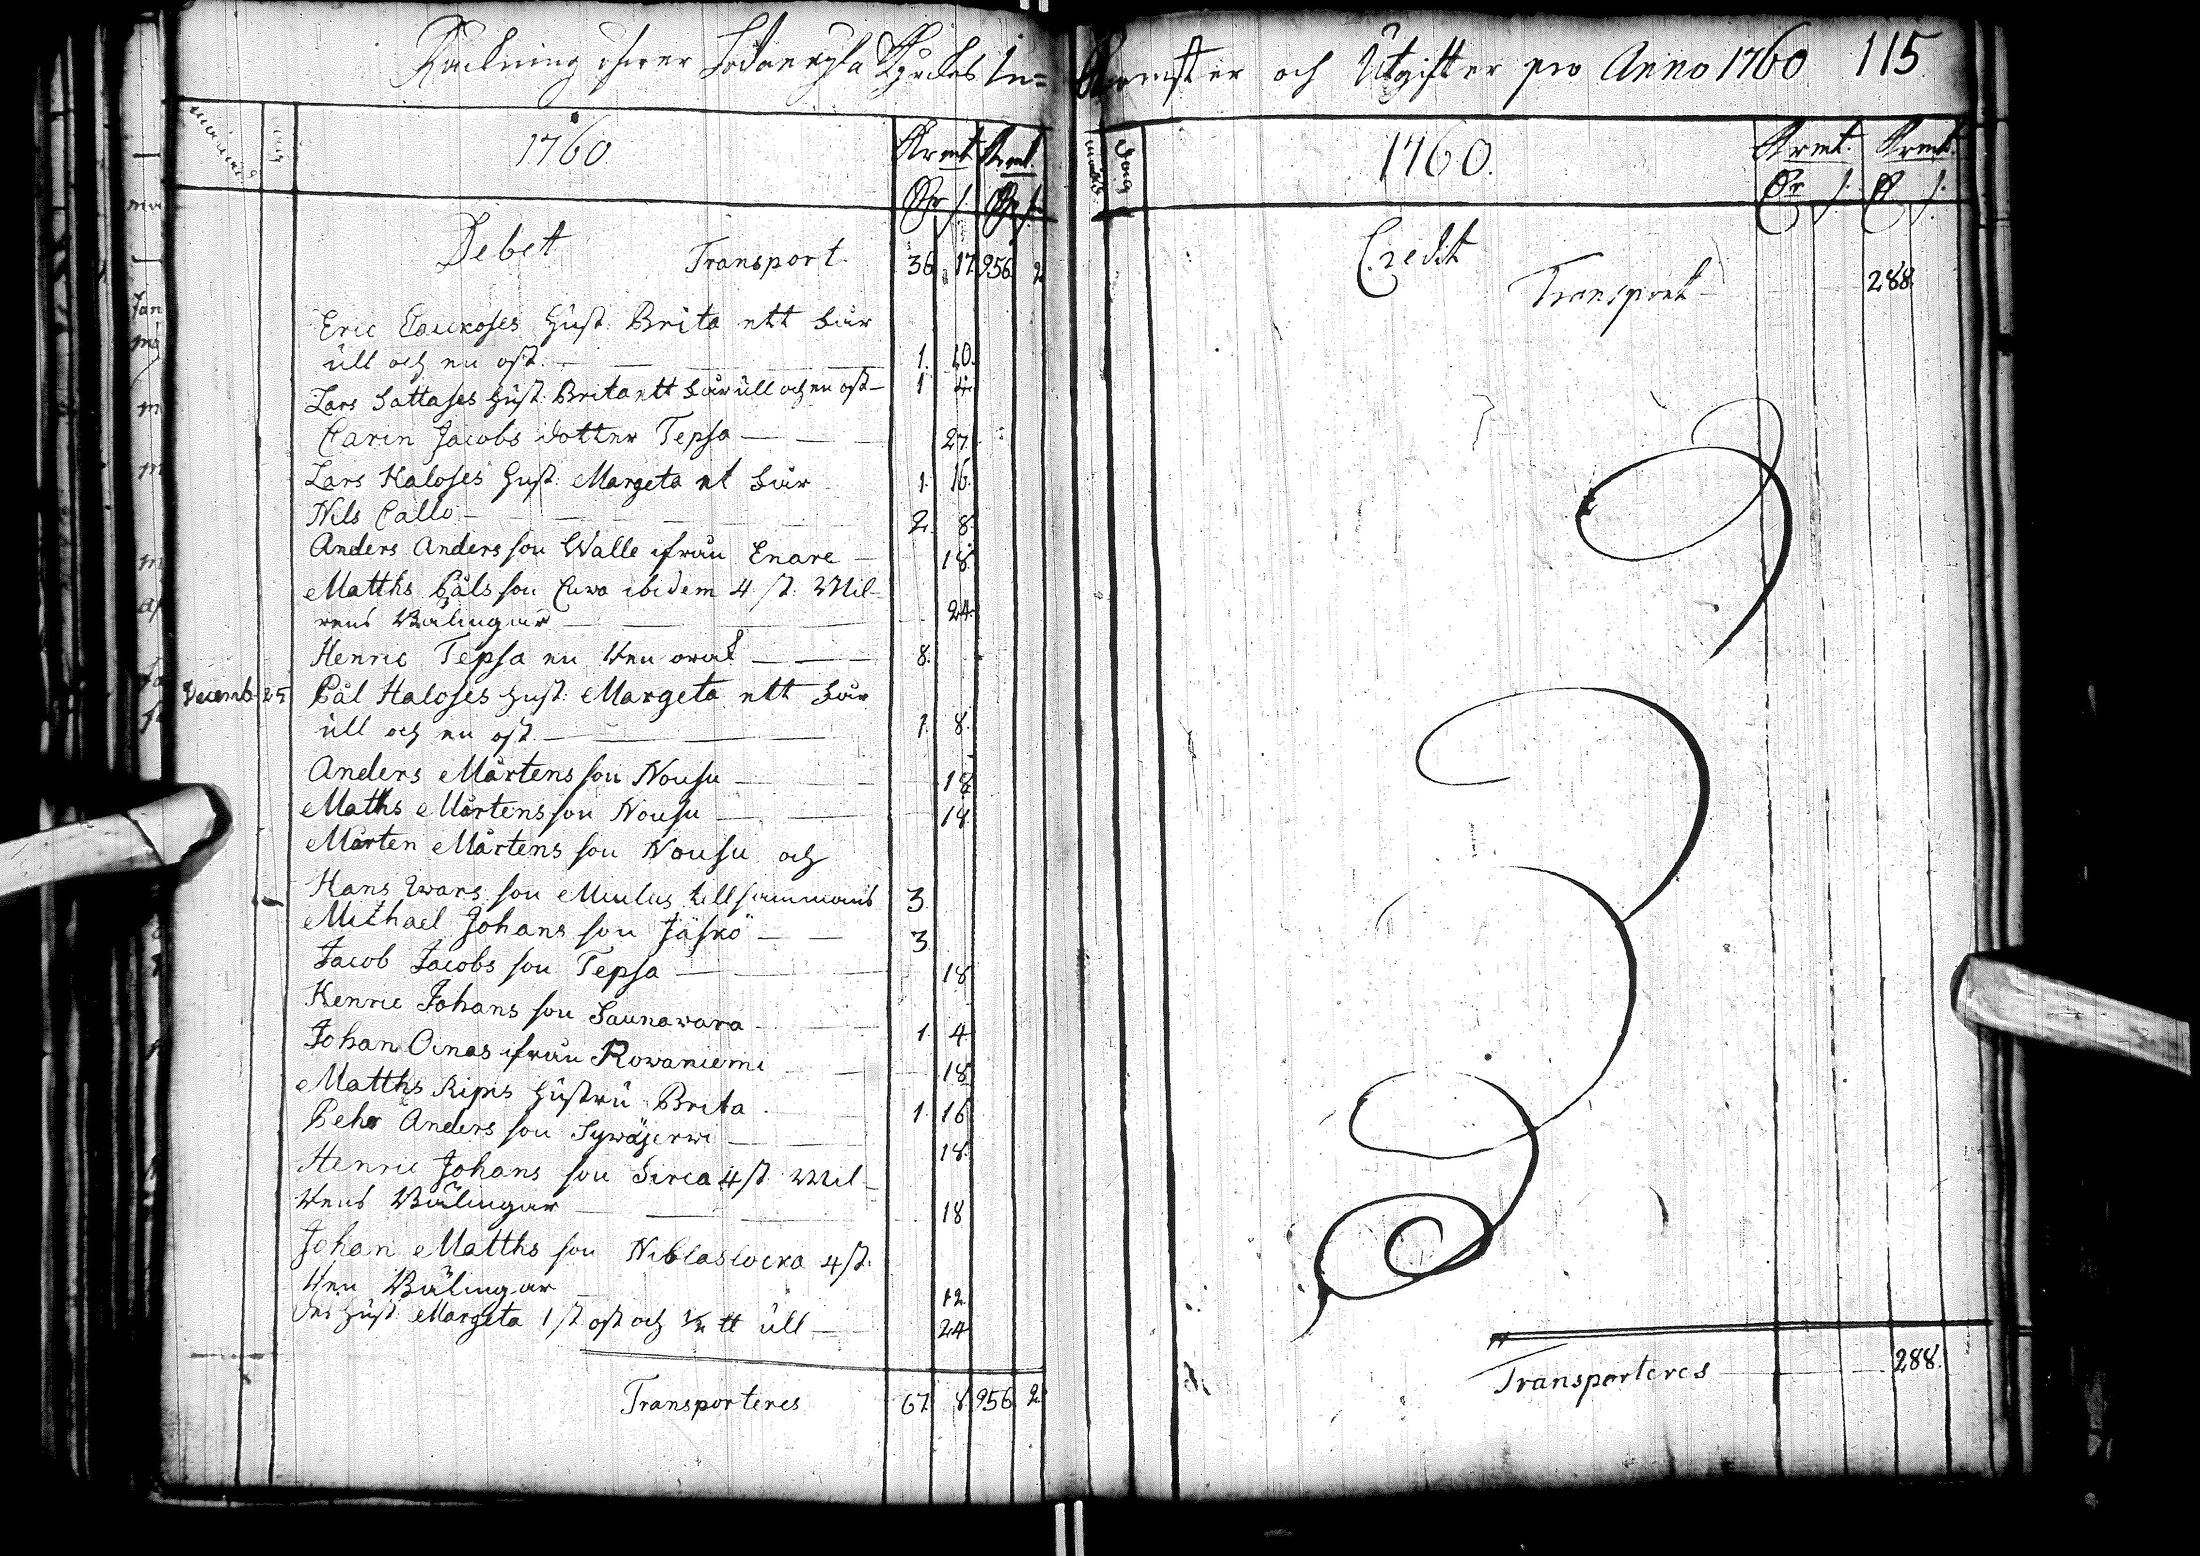 Räckning öfwer Sodankyla Kyrckos In=
1760
Krmt Krmt.
Debet Transport 36 17 956 2
Eric Hust: Brita ett Lår
ull och en ost 1 10
Lars Sattases Hust: Brita ett Lår ull och en ost 1 4
Carin Jacobs dotter Tepsa 27
Lars Haloses Hust: Margeta et Lår 1. 16
Nils Callo 2 8
Anders Anders son Walle ifrån Enare 18
Matths Påls son Cuwa ibidem 4 st. Wil-
rens Bälingar 24
Henric Tepsa en Ren orak 8.
Decemb. 25 Pål Haloses Hust: Margeta ett Lår
ull och en ost 1. 8.
Anders Mårtens son Nousu 18
Maths Mårtens son Nousu 18
Mårten Mårtens son Nousu och
Hans Iwars son tillsammans 3
Michael Johans son Jäskö 3
Jacob Jacobs son Tepsa 18
Henric Johans son Saunawara 1. 4
Johan Oinas ifrån Rowaniemi 18
Matths Ripis Hustru Brita 1. 16
Pehr Anders son Sywäjerwi 18
Henric Johans son Sirca 4 st Wil-
rens Bälingar 18
Johan Matths son 4 st.
Ren Bälingar 12
Des Hust Margeta 1 st ost och ½ tt ull 24
Transporteres 67 8 956 2
Komster och Utgifter pro Anno 1760 115
Dag
1760.
Krmt. Krmt.
Credit
Transport 288.
Transporteres 288.